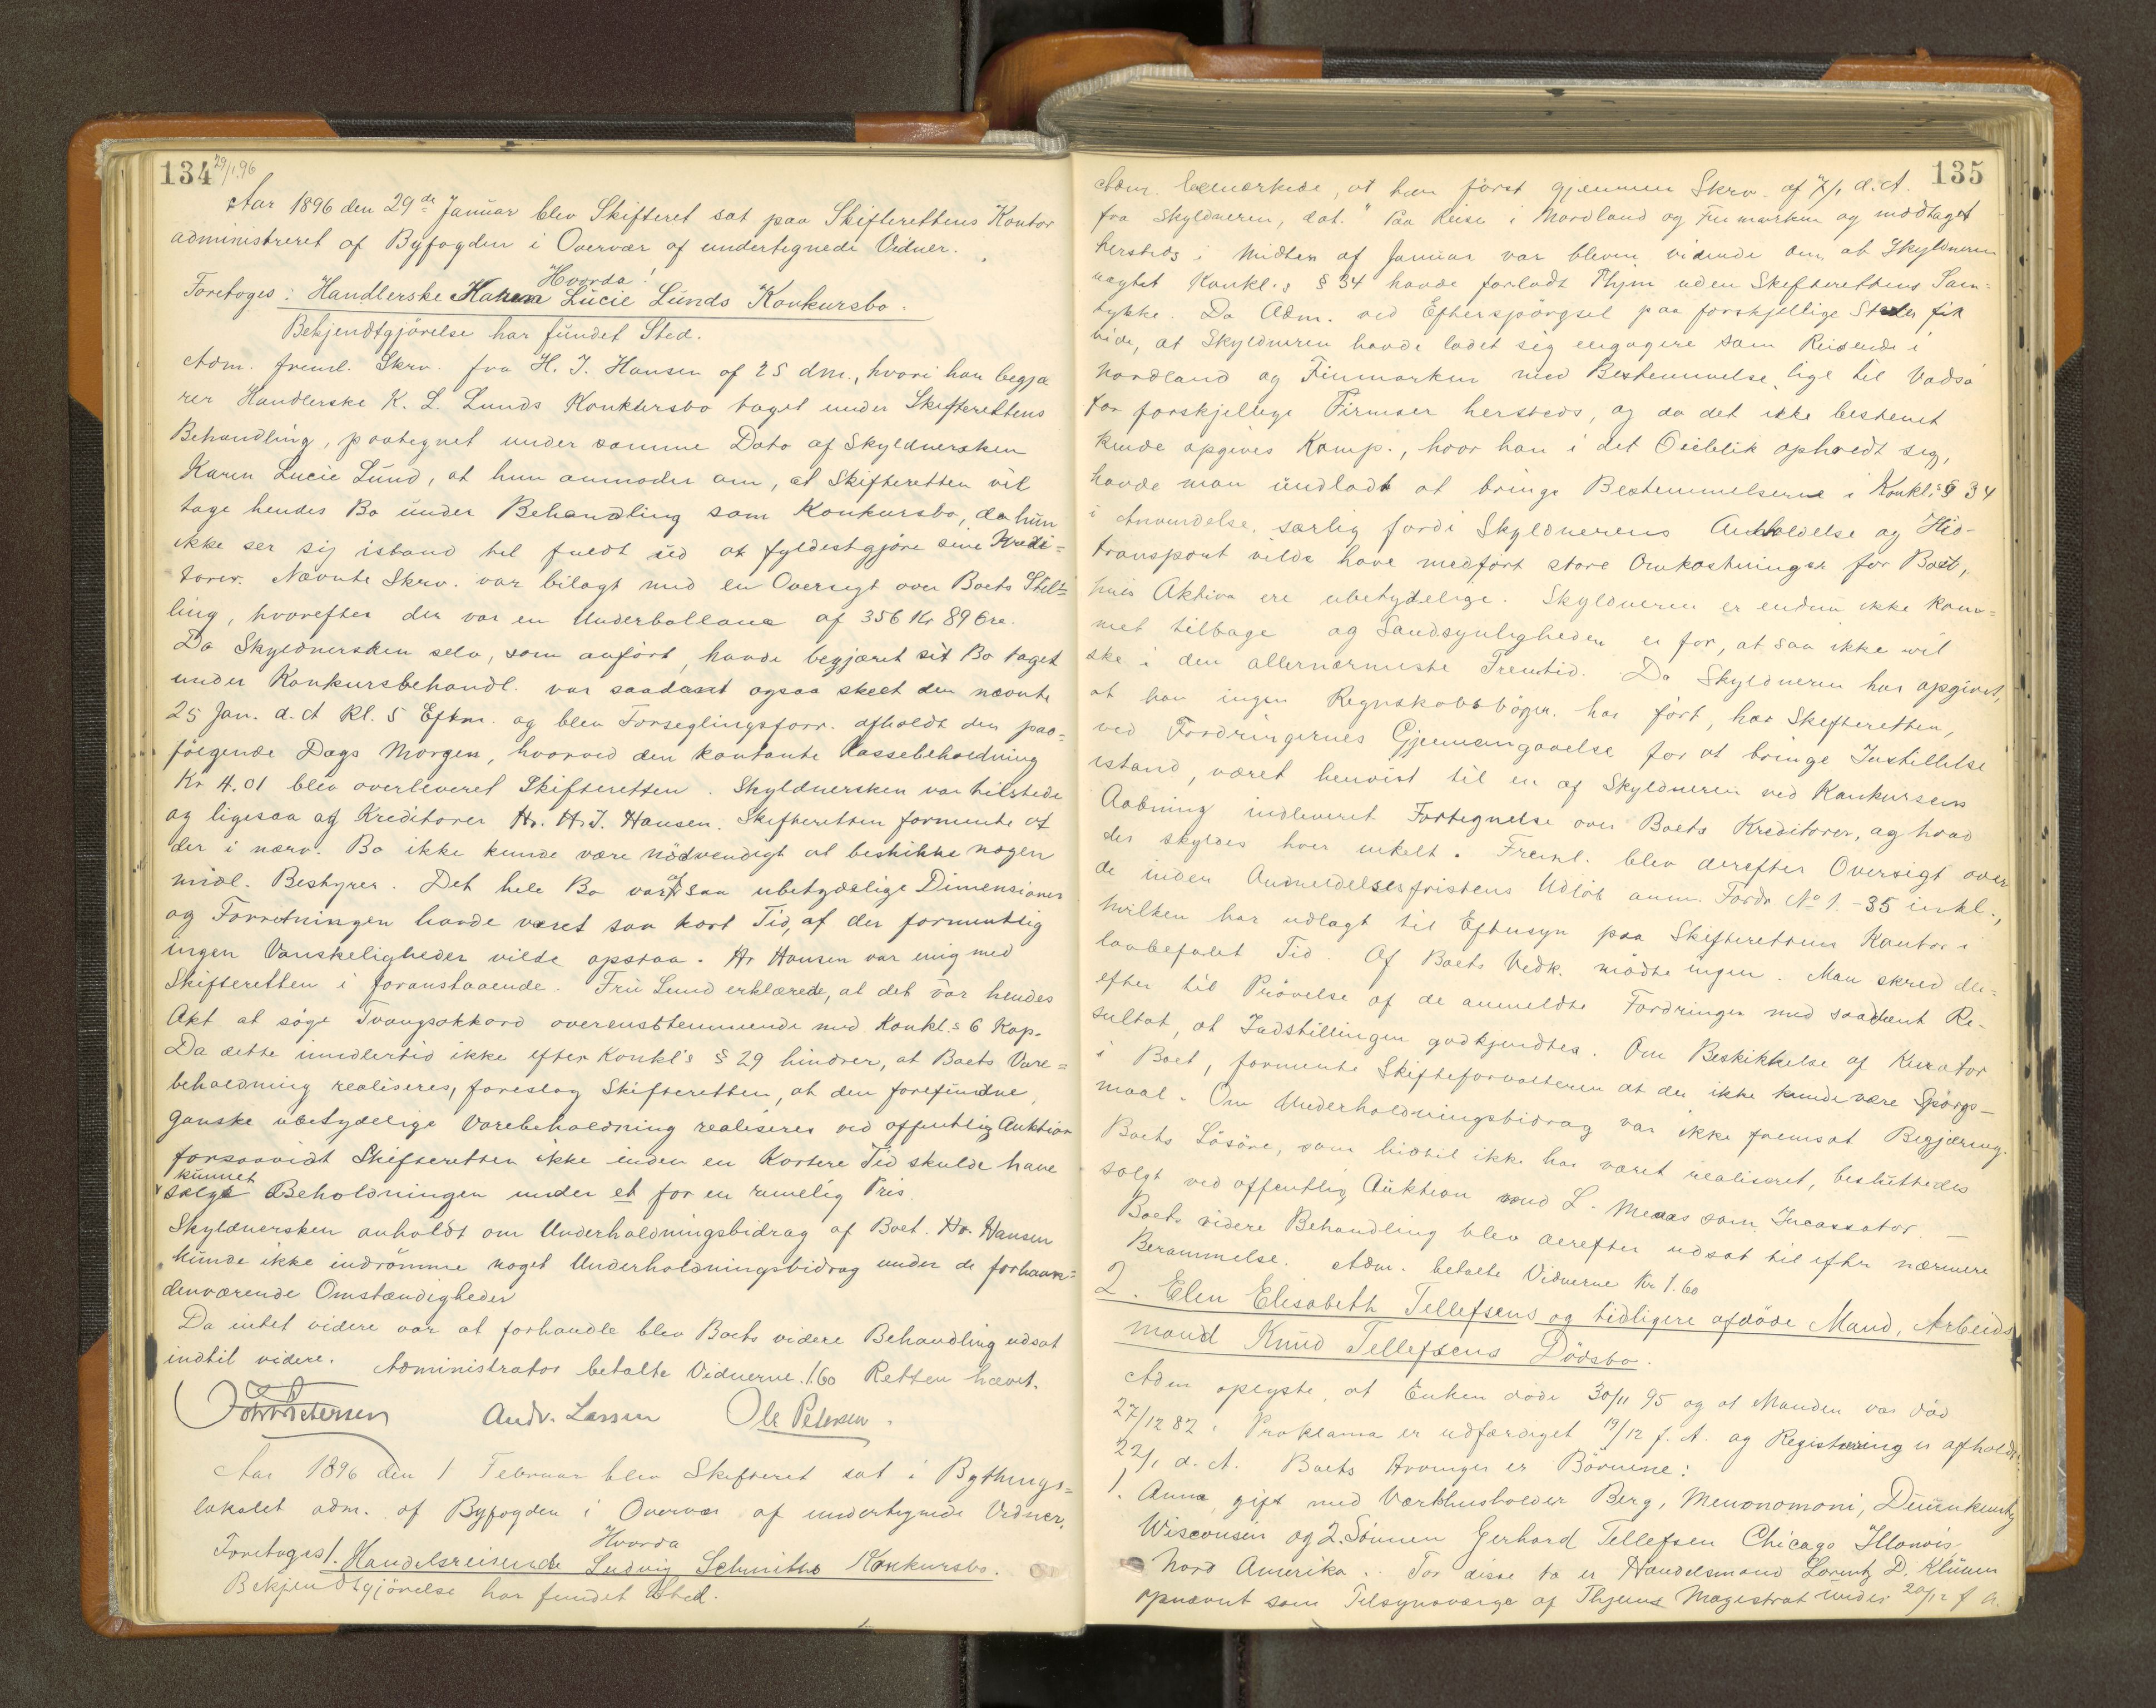 134 29/1 96
Aar 1896 den 29de Januar blev Skifteret sat paa Skifterettens Kontor
administreret af Byfogden i Overvær af undertegnede Vidner.
Hvorda!
Foretoges: Handlerske Karen Lucie Lunds Konkursbo.
Bekjendtgjörelse har fundet Sted.
Adm. freml. Skrv. fra H. J. Hansen af 25 dm., hvori han begjæ
rer Handlerske K. L. Lunds Konkursbo taget under Skifterettens
Behandling, paategnet under samme Dato af Skyldnersken
Karen Lucie Lund, at hun anmoder om, at Skifteretten vil
tage hendes Bo under Behandling som Konkursbo, da hun
ikke ser sig istand til fuldt ud at fyldestgjöre sine Kredi=
torer. Nævnte Skrv. var bilagt med en Oversigt over Boets Stil=
ling, hvorefter der var en Underballance af 356 Kr 89 Öre.
Da Skyldnersken selv, som anfört, havde begjæret sit Bo taget
under Konkursbehandl. var saadant ogsaa skeet den nævnte
25 Jan. d. A Kl. 5 Eftm. og blev Forseglingsforr. afholdt den paa=
fölgende Dags Morgen, hvorved den kontante Kassebeholdning
Kr 4.01 blev overleveret Skifteretten. Skyldnersken var tilstede
og ligesaa af Kreditorer Hr. H. J. Hansen. Skifteretten formente at
der i nærv. Bo ikke kunde være nödvendigt at beskikke nogen
midl. Bestyrer. Det hele Bo var af saa ubetydelige Dimensioner
og Forretningen havde været saa kort Tid, at der formentlig
ingen Vanskeligheder vilde opstaa. Hr Hansen var enig med
Skifteretten i foranstaaende. Fru Lund erklærede, at det var hendes
Akt at söge Tvangsakkord overensstemmende med Konkl.s 6 Kap.
Da dette imidlertid ikke efter Konkl's § 29 hindrer, at Boets Vare=
beholdning realiseres, foreslog Skifteretten, at den forefundne,
ganske ubetydelige Varebeholdning realiseres ved offentlig Auktion
forsaavidt Skifteretten ikke inden en kortere Tid skulde have
kunnet
sælge Beholdningen under et for en rimelig Pris.
Skyldnersken anholdt om Underholdningsbidrag af Boet. Hr. Hansen
kunde ikke indrömme noget Underholdningsbidrag under de forhaan=
denværende Omstændigheder
Da intet videre var at forhandle blev Boets videre Behandling udsat
indtil videre. Administrator betalte Vidnerne 1.60 Retten hævet.
Andr. Larsen Ole Petersen.
Aar 1896 den 1 Februar blev Skifteret sat i Bythings=
lokalet adm. af Byfogden i Overvær af undertegnede Vidner.
Hvorda
Foretoges 1. Handelsreisende Ludvig Schmiths Konkursbo.
Bekjendtgjörelse har fundet Sted.
135
Adm. bemærkede, at han först gjennem Skrv. af 7/1 d. A.
fra Skyldneren, dat. "Paa Reise i Nordland og Finmarken og modtaget
hersteds i Midten af Januar var bleven vidende om, at Skyldneren
uagtet Konkl.s § 34 havde forladt Thjm uden Skifterettens Sam=
tykke. Da Adm. ved Efterspörgsel paa forskjellige Steder fik
vide, at Skyldneren havde ladet sig engagere som Reisende i
Nordland og Finmarken med Bestemmelse lige til Vadsö
for forskjellige Firmaer hersteds, og da det ikke bestemt
kunde opgives Komp., hvor han i det Öieblik opholdt sig,
havde man undladt at bringe Bestemmelserne i Konkl.s § 34
i Anvendelse, særlig fordi Skyldnerens Anholdelse og Hid-
transport vilde have medfört store Omkostninger for Boet,
hvis Aktiva ere ubetydelige. Skyldneren er endnu ikke kom=
met tilbage og Sandsynligheden er for, at saa ikke vil
ske i den allernærmeste Fremtid. Da Skyldneren har opgivet,
at han ingen Regnskabsböger har fört, har Skifteretten,
ved Fordringernes Gjennemgaaelse for at bringe Indstillelse
istand, været henvist til en af Skyldneren ved Konkursens
Aabning indleveret Fortegnelse over Boets Kreditorer, og hvad
der skyldes hver enkelt. Freml. blev derefter Oversigt over
de inden Anmeldelsesfristens Udlöb anm. Fordr No 1.-35 inkl.,
hvilken har udlagt til Eftersyn paa Skifterettens Kontor i
lovbefalet Tid. Af Boets Vedk. mödte ingen. Man skred der=
efter til Prövelse af de anmeldte Fordringer med saadant Re-
sultat, at Indstillingen godkjendtes. Om Beskikkelse af Kurator
i Boet, formente Skifteforvalteren at der ikke kunde være Spörgs-
maal. Om Underholdningsbidrag var ikke fremsat Begjæring.
Boets Lösöre, som hidtil ikke har været realiseret, besluttedes
solgt ved offentlig Auktion med L. Meaas som Incassator. —
Boets videre Behandling blev derefter udsat til efter nærmere
Berammelse. Adm. betalte Vidnerne Kr 1.60
2. Elen Elisabeth Tellefsens og tidligere afdöde Mand, Arbeids
mand Knud Tellefsens Dödsbo.
Adm oplyste, at Enken döde 30/11 95 og at Manden var död
27/12 82. Proklama er udfærdiget 19/12 f. A. og Registrering er afholdt
22/1 d. A. Boets Arvinger er Börnene:
1. Anna, gift med Værthusholder Berg, Menonomoni, Dunnkunty
Wisconsin og 2. Sönnen Gerhard Tellefsen Chicago Illonois
Nord Amerika. For disse to er Handelsmand Lorentz D. Klüwer
opnævnt som Tilsynsværge af Thjems Magistrat under 20/12 f A.